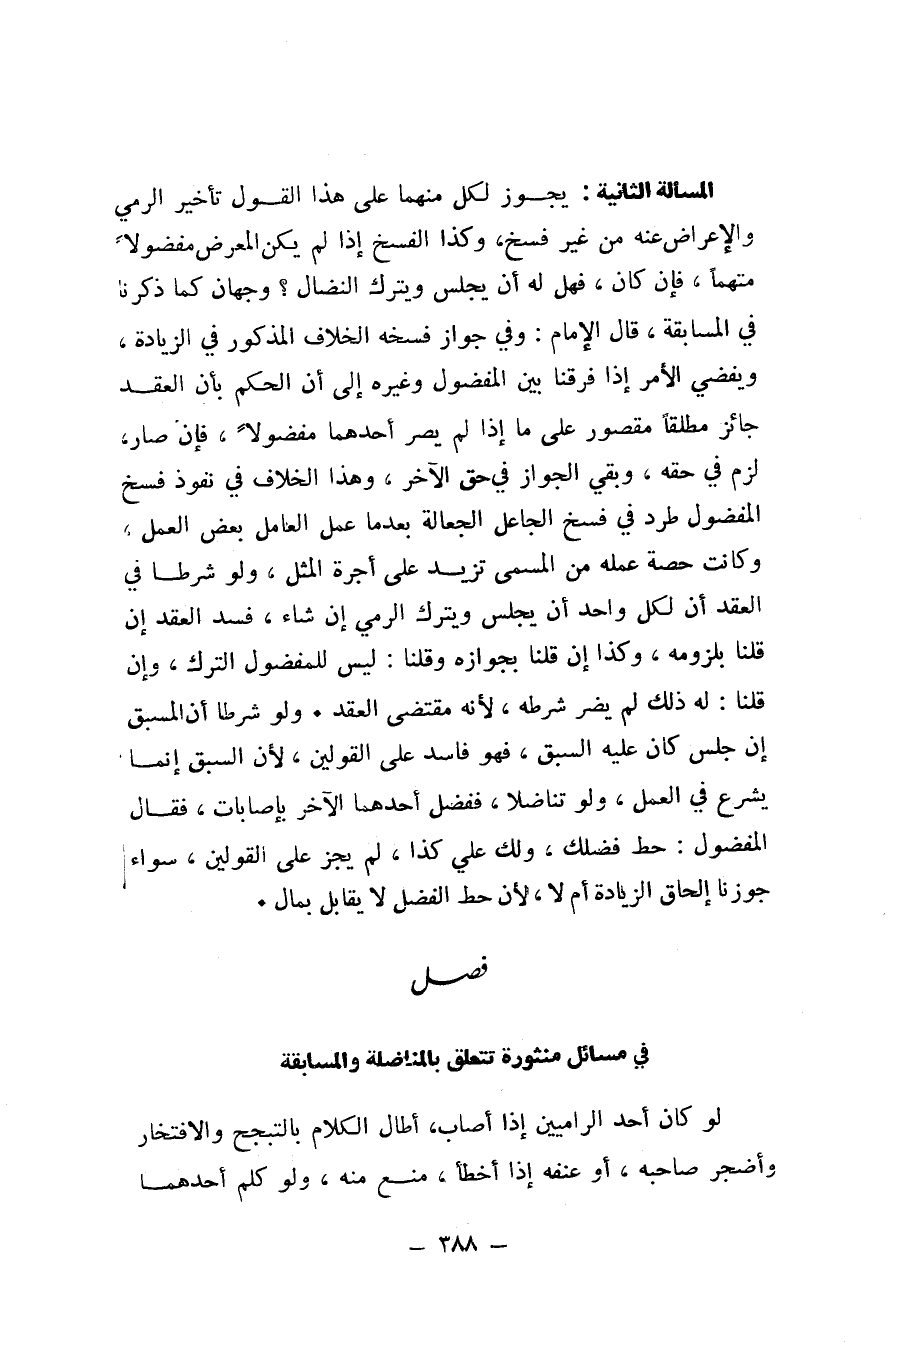 المسألة الثانية : يجــوز لكل منهما على هذا القــول تأخير الرمي
والإعراض عنه من غير فسخ، وكذا الفسخ إذا لم يكن المعرض مفضولاً
متهماً ، فإن كان ، فهل له أن يجلس ويترك النضال ؟ وجهان كما ذكرنا
في المسابقة ، قال الإمام : وفي جواز فسخه الخلاف المذكور في الزيادة ،
ويفضي الأمر إذا فرقنا بين المفضول وغيره إلى أن الحكم بأن العقــد
جائز مطلقاً مقصور على ما إذا لم يصر أحدهما مفضولاً ، فإن صار،
لزم في حقه ، وبقي الجواز في حق الآخر ، وهذا الخلاف في نفوذ فسخ
المفضول طرد في فسخ الجاعل الجعالة بعدما عمل العامل بعض العمل ،
وكانت حصة عمله من المسمى تزيــد على أجرة المثل ، ولو شرطــا في
العقد أن لكل واحد أن يجلس ويترك الرمي إن شاء ، فسد العقد إن
قلنا بلزومه ، وكذا إن قلنا بجوازه وقلنا : ليس للمفضول الترك ، وإن
قلنا : له ذلك لم يضر شرطه ، لأنه مقتضى العقد . ولو شرطا أن المسبق
إن جلس كان عليه السبق ، فهو فاسد على القولين ، لأن السبق إنمــا
يشرع في العمل ، ولو تناضلا ، ففضل أحدهما الآخر بإصابات ، فقــال
المفضول : حط فضلك ، ولك علي كذا ، لم يجز على القولين ، سواء
جوزنا إلحاق الزيادة أم لا ، لأن حط الفضل لا يقابل بمال .
فصــل
في مسائل منثورة تتعلق بالمناضلة والمسابقة
لو كان أحد الراميين إذا أصاب، أطال الكلام بالتبجح والافتخار
وأضجر صاحبه ، أو عنفه إذا أخطأ ، منــع منه ، ولو كلم أحدهمــا
– ٣٨٨ –